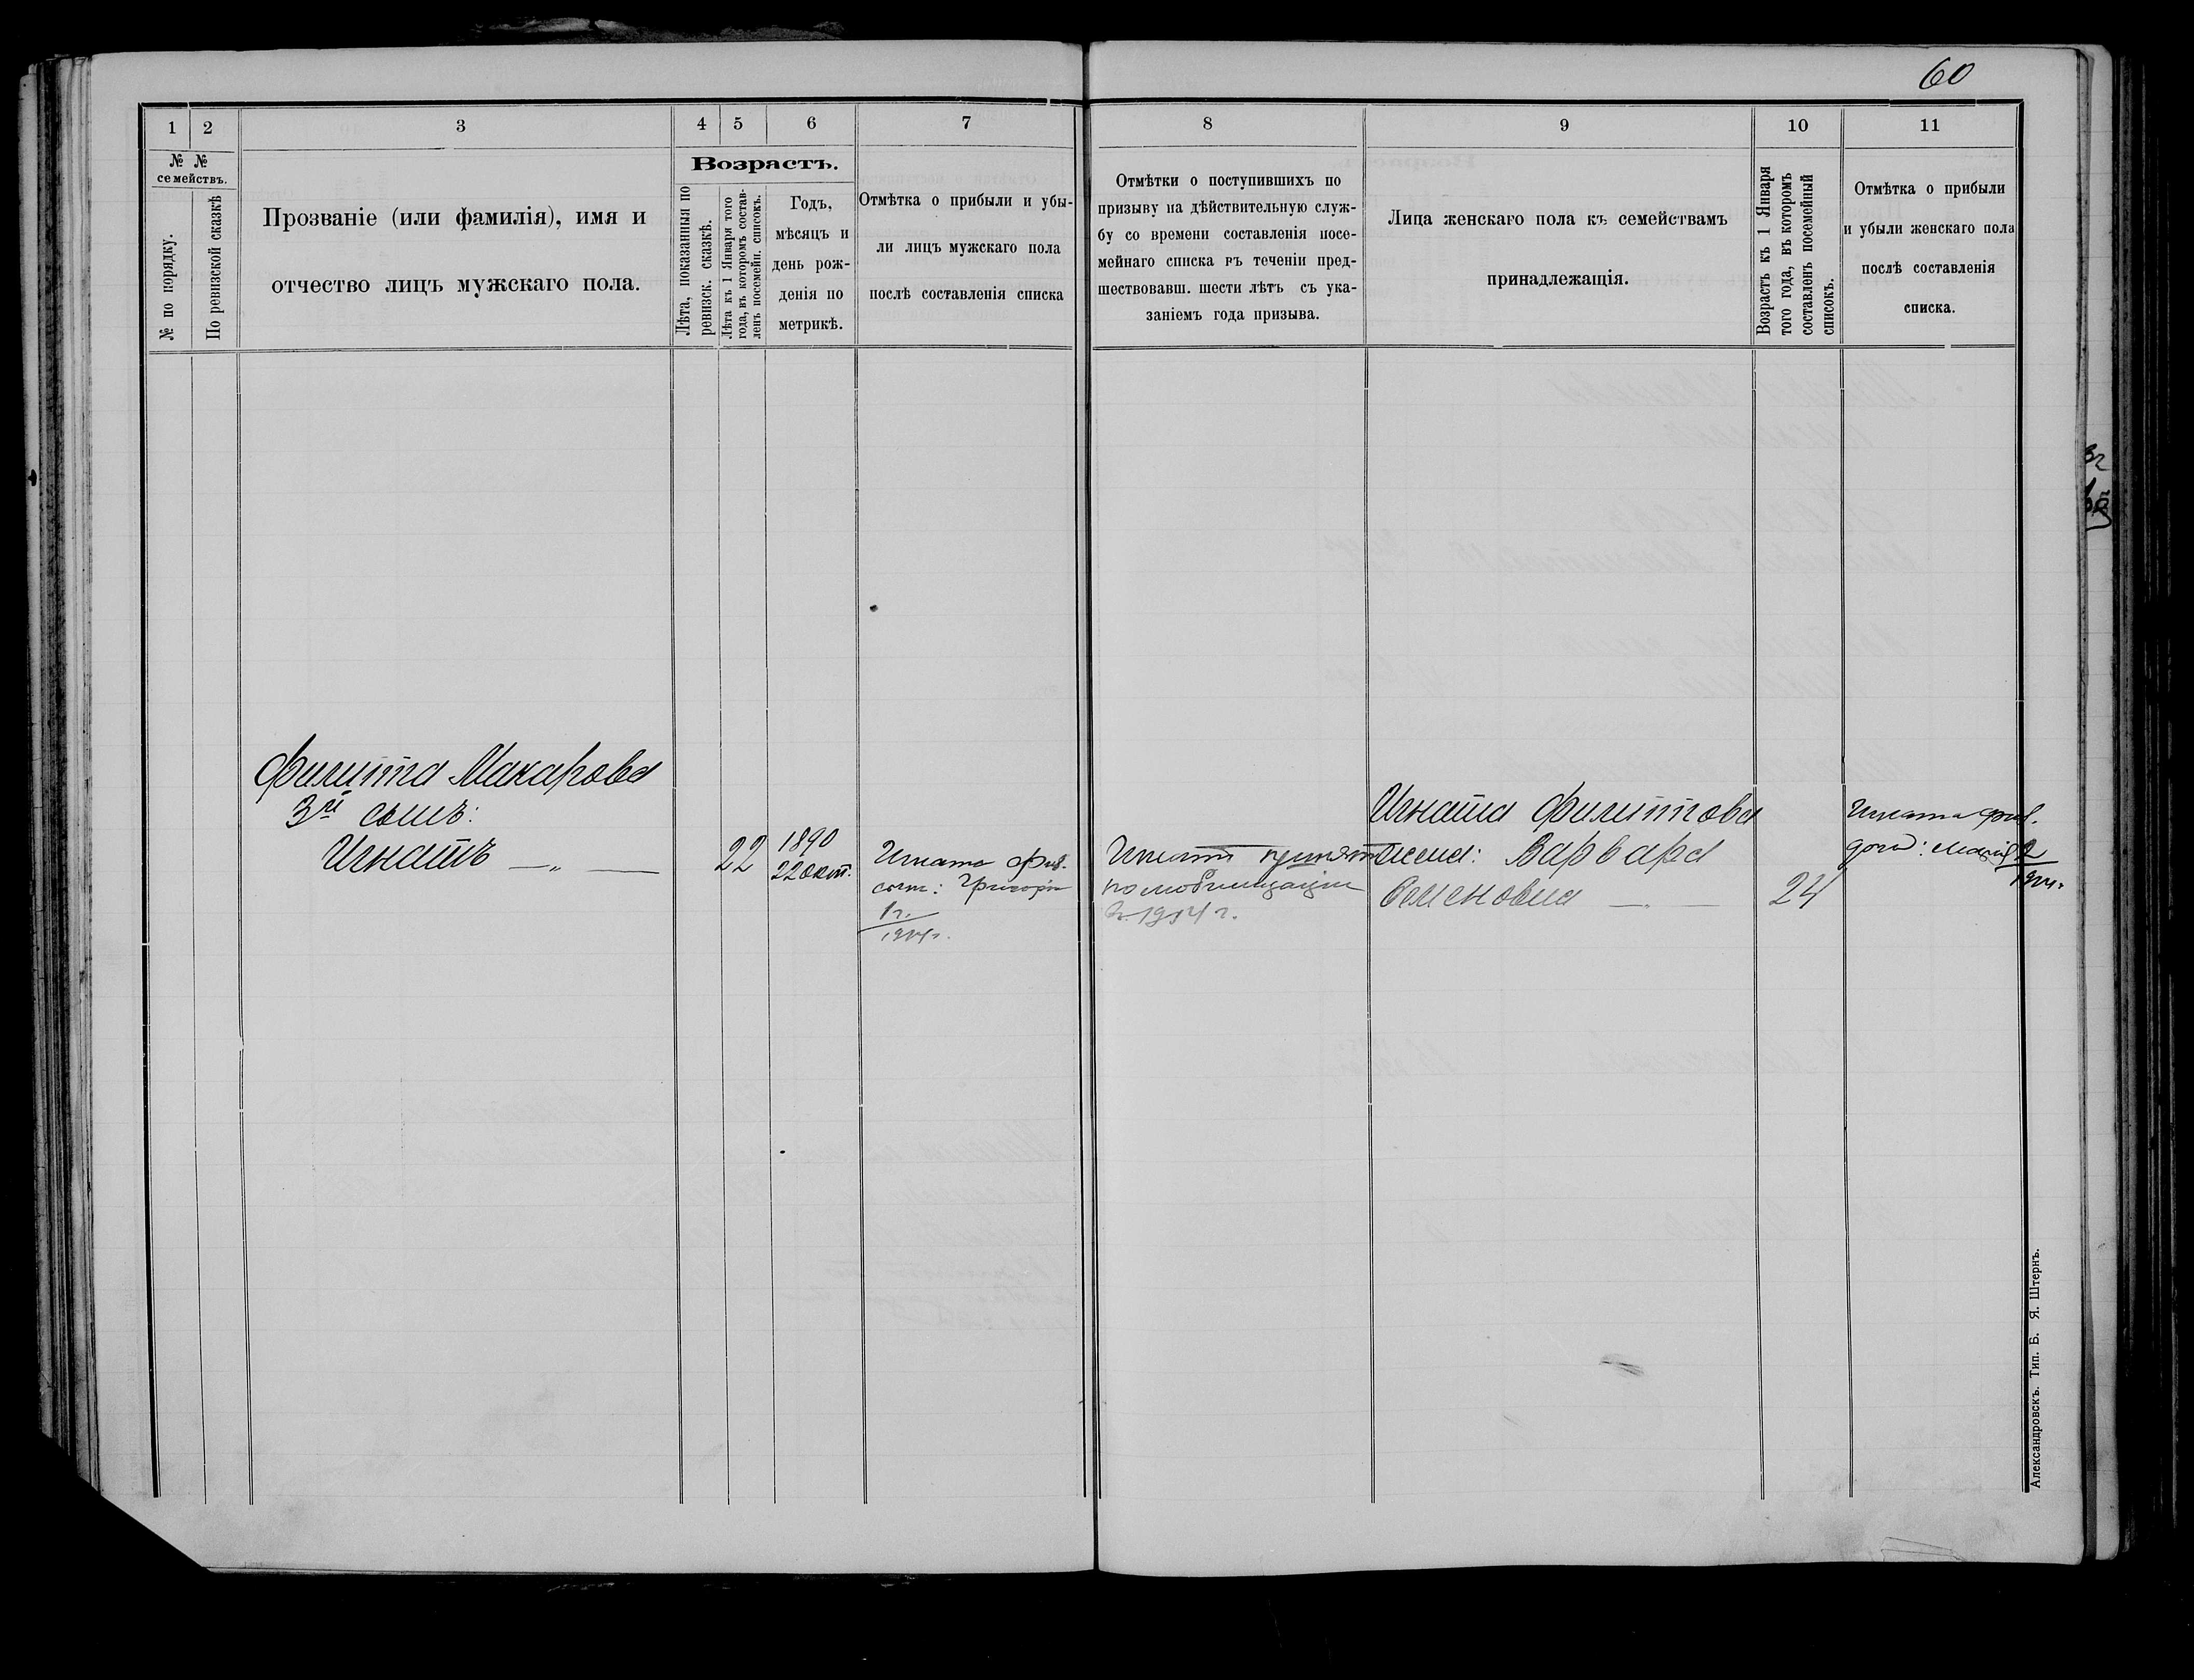 60
1
2
3
4
5
6
7
8
9
10
11
№ №
семействъ.
№ по порядку.
По ревизской сказкѣ
Прозваніе (или фамилія), имя и
отчество лицъ мужскаго пола.
Возрастъ.
Лѣта, показанныя по
ревизск. сказкѣ.
Лѣта къ 1 Января того
года, въ которомъ состав-
ленъ посемейн. списокъ.
Годъ,
мѣсяцъ и
день рож-
денія по
метрикѣ.
Отмѣтка о прибыли и убы-
ли лицъ мужскаго пола
послѣ составленія списка
Отмѣтки о поступившихъ по
призыву на дѣйствительную служ-
бу со времени составленія посе-
мейнаго списка въ теченіи пред-
шествовавш. шести лѣтъ съ ука-
заніемъ года призыва.
Лица женскаго пола къ семействамъ
принадлежащія.
Возрастъ къ 1 Января
того года, въ которомъ
составленъ посемейный
списокъ.
Отмѣтка о прибыли
и убыли женскаго пола
послѣ составленія
списка.
Филиппа Макарова
3й сынъ:
Игнатъ — „ —
22
1890
22 окт.
Игната Фил.
сынъ: Григорій
1 г.
1914 г.
Игнатъ принятъ
по мобилизаціи
въ 1914 г.
Игната Филиппова
жена: Варвара
Семеновна — „ —
24
Игната Фил.
дочь: Марія 2
1914 г.
Александровскъ. Тип. Б. Я. Штернъ.